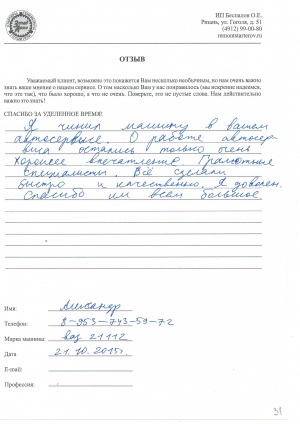 ИП Беспалов О.Е.
Рязань, ул. Гоголя, д. 51
(4912) 99-00-80
remontmasterov.ru
ОТЗЫВ
Уважаемый клиент, возможно это покажется Вам несколько необычным, но нам очень важно
знать ваше мнение о нашем сервисе. О том насколько Вам у нас понравилось (мы искренне надеемся,
что это так), что было хорошо, а что не очень. Поверьте, это не пустые слова. Нам действительно
важно это знать!
СПАСИБО ЗА УДЕЛЕННОЕ ВРЕМЯ!
Я чинил машину в вашем
автосервисе. О работе автосер-
виса остались только очень
хорошее впечатления. Грамотные
специалисты. Всё сделали
быстро и качественно. Я доволен.
Спасибо им всем большое
Имя: Александр
Телефон: 8-953-743-59-72
Марка машины: ваз 21112
Дата 21.10.2015г.
E-mail:
Профессия:
31